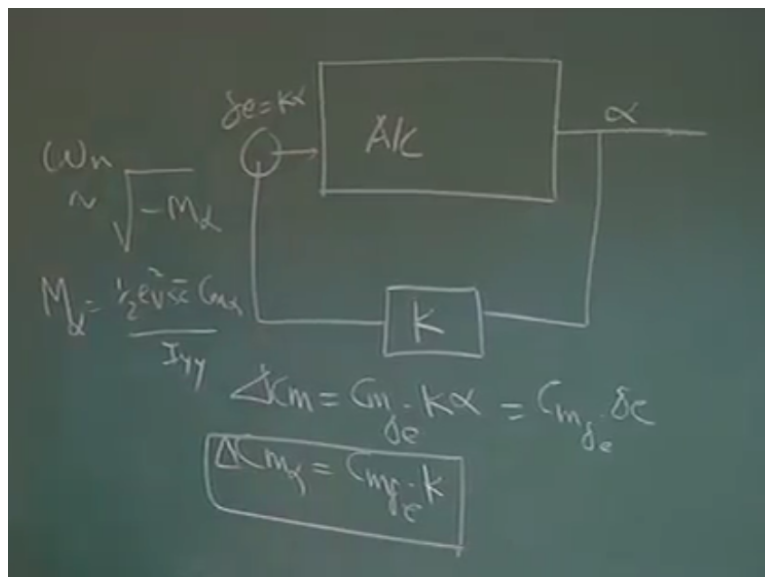 δe = kα
A/C
α
ωn
~ √-Mα
Mα = ½ρv²sc̄ Cmα
Iyy
K
ΔCm = Cmδe · Kα = Cmδe · δe
ΔCmα = Cmδe · K